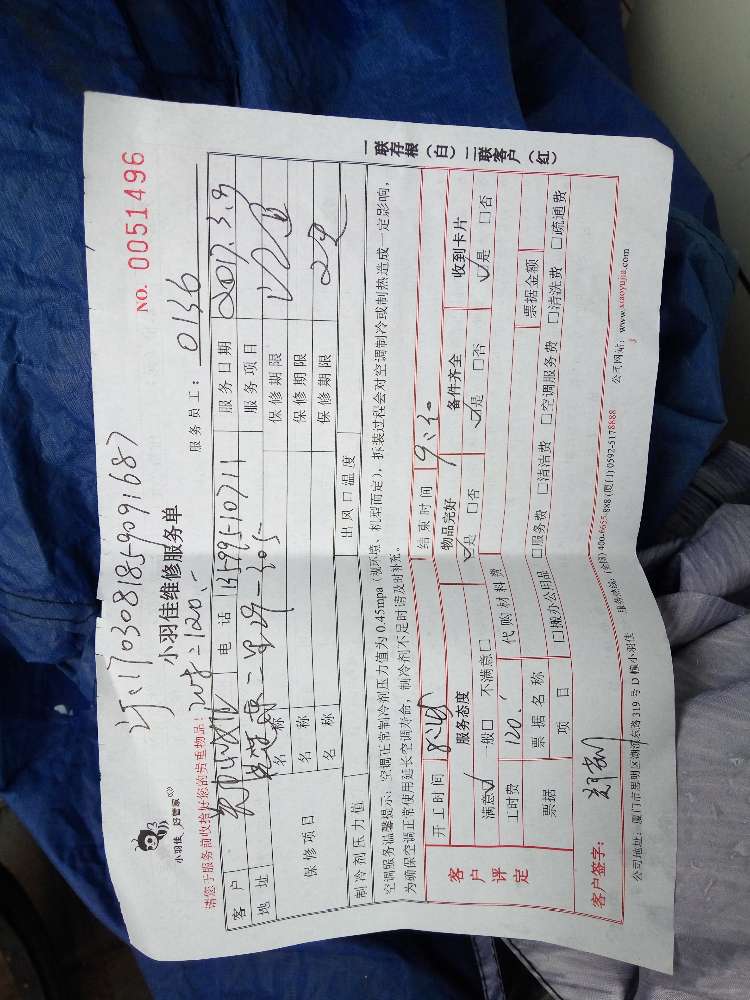 小羽佳 好管家
NO. 0051496
170308185-9091687
小羽佳维修服务单
请您于服务前收拾好您的贵重物品!
=120.-
服务员工: 0136
客户
电话
服务日期 2017.3.9
地址
服务项目
保修项目
名称
保修期限
名称
保修期限
名称
保修期限
制冷剂压力值
出风口温度
空调服务温馨提示:空调正常制冷剂压力值为0.45mpa(视环境、机型而定),拆装过程会对空调制冷或制热造成一定影响,
为确保空调正常使用延长空调寿命,制冷剂不足时请及时补充。
客户评定
开工时间
结束时间
服务态度
物品完好
备件齐全
收到卡片
满意☑ 一般□ 不满意□
☑是 □否
☑是 □否
☑是 □否
工时费 120.-
代购材料费
票据
票据名称
票据金额
项目
□服务费 □清洁费 □空调服务费 □清洗费 □疏通费
客户签字:
公司地址:厦门市思明区湖滨东路319号D栋小羽佳
服务热线:(全国)400-6655-888 (厦门)0592-5178888
公司网站:www.xiaoyujia.com
一联存根(白)二联客户(红)